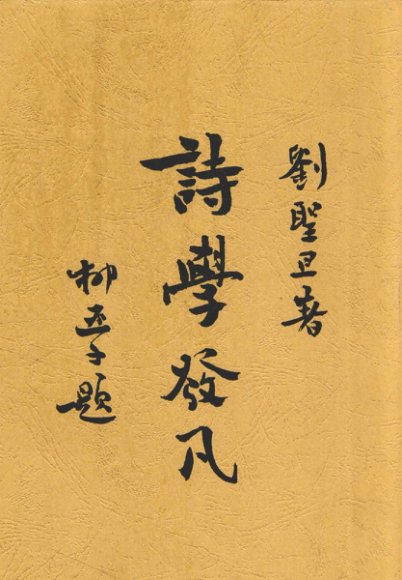 劉聖旦著
詩學發凡
柳亞子題